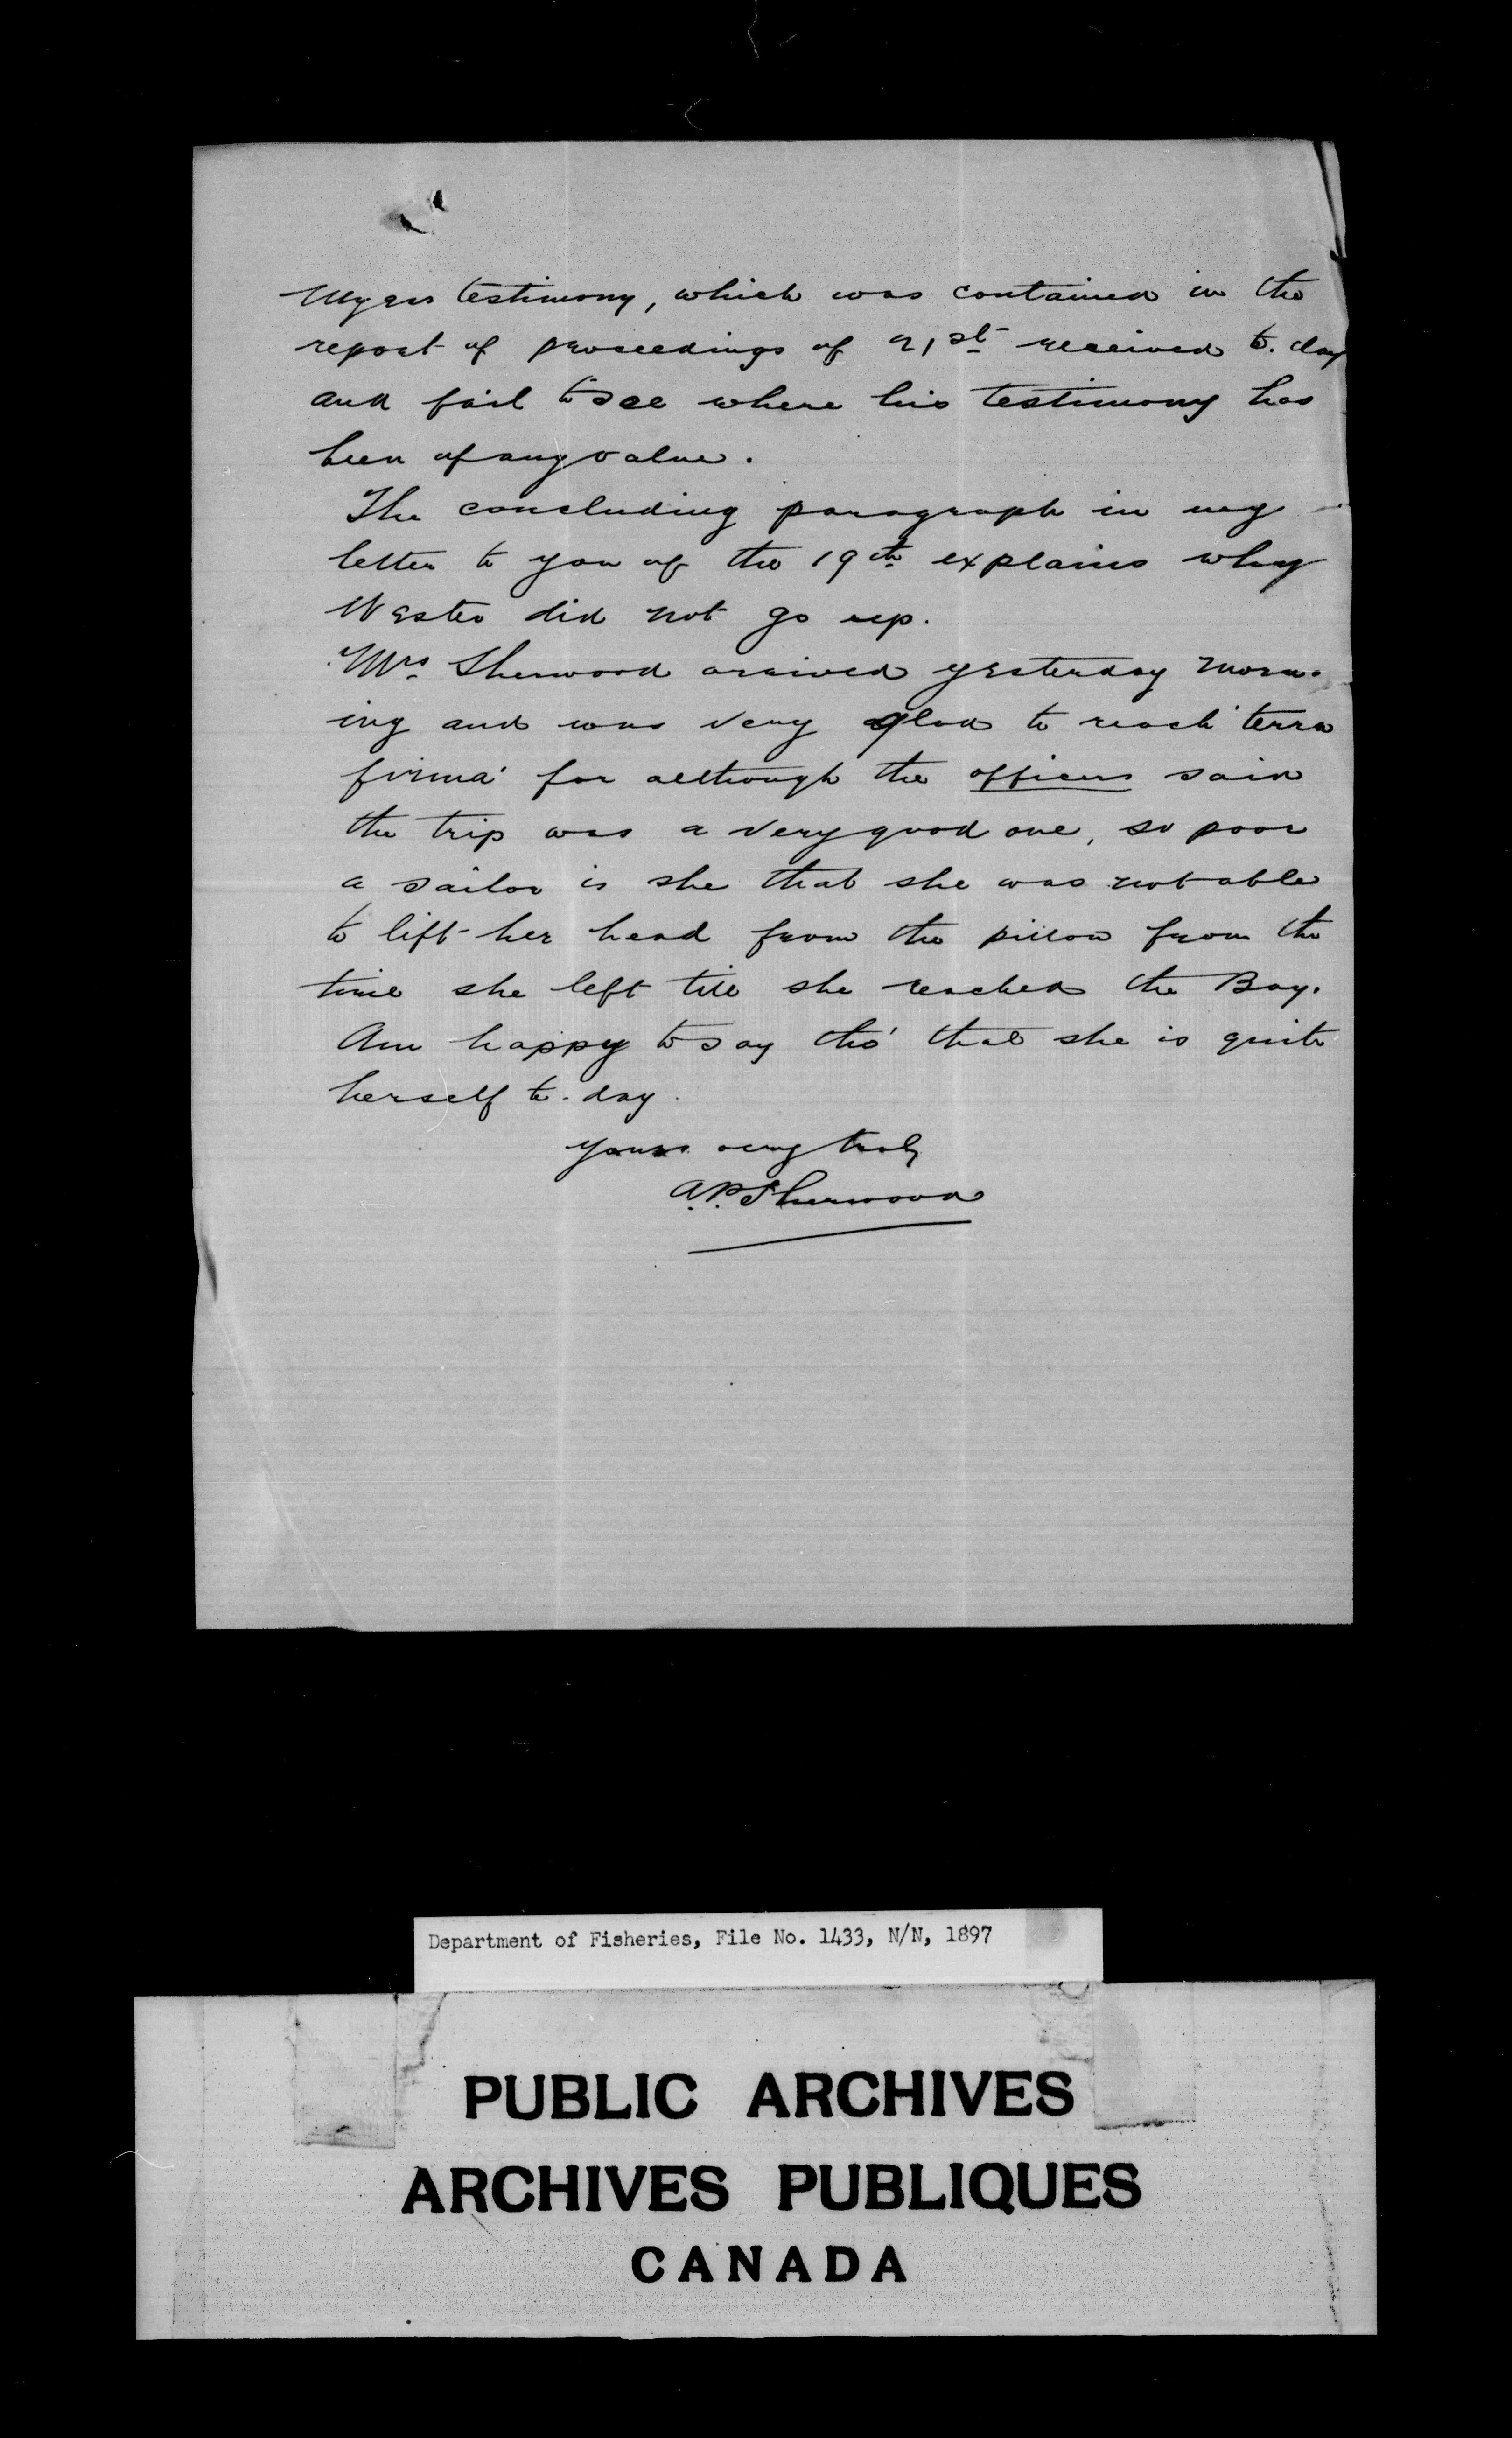 Myers testimony, which was contained in the
report of proceedings of 21st received to.day
and fail to see where his testimony has
been of any value.
The concluding paragraph in my
letter to you of the 19th explains why
Wester did not go up.
Mrs Sherwood arrived yesterday morn-
ing and was very glad to reach 'terra
firma' for although the officers said
the trip was a very good one, so poor
a sailor is she that she was not able
to lift her head from the pillow from the
time she left till she reached the Bay.
Am happy to say tho' that she is quite
herself to.day.
Yours very truly
A.P. Sherwood
Department of Fisheries, File No. 1433, N/N, 1897
PUBLIC ARCHIVES
ARCHIVES PUBLIQUES
CANADA